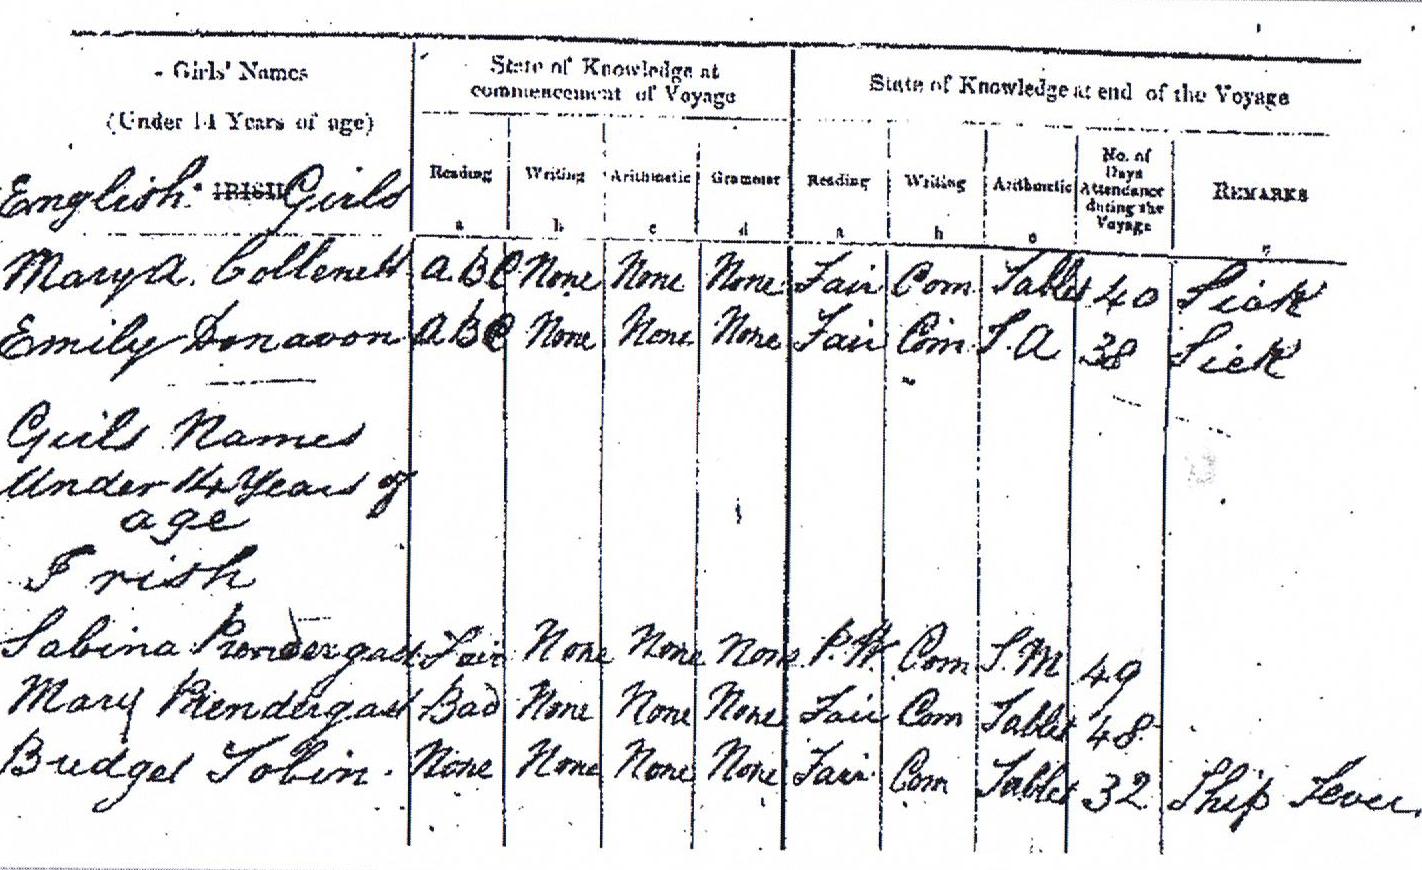 Girls' Names
(Under 14 Years of age)
State of Knowledge at commencement of Voyage
State of Knowledge at end of the Voyage
English IRISH Girls
Reading Writing Arithmetic Grammar Reading Writing Arithmetic No. of Days Attendance during the Voyage REMARKS
a b c d a b c e
Mary A. Collenett A B C None None None Fair Com Tables 40 Sick
Emily Donavon A B C None None None Fair Com S. A 38 Sick
Girls Names
Under 14 Years of
age
Irish
Sabina Prendergast Fair None None None P. W. Com S. M 49
Mary Prendergast Bad None None None Fair Com Tables 48
Bridget Tobin. None None None None Fair Com Tables 32 Ship Fever.